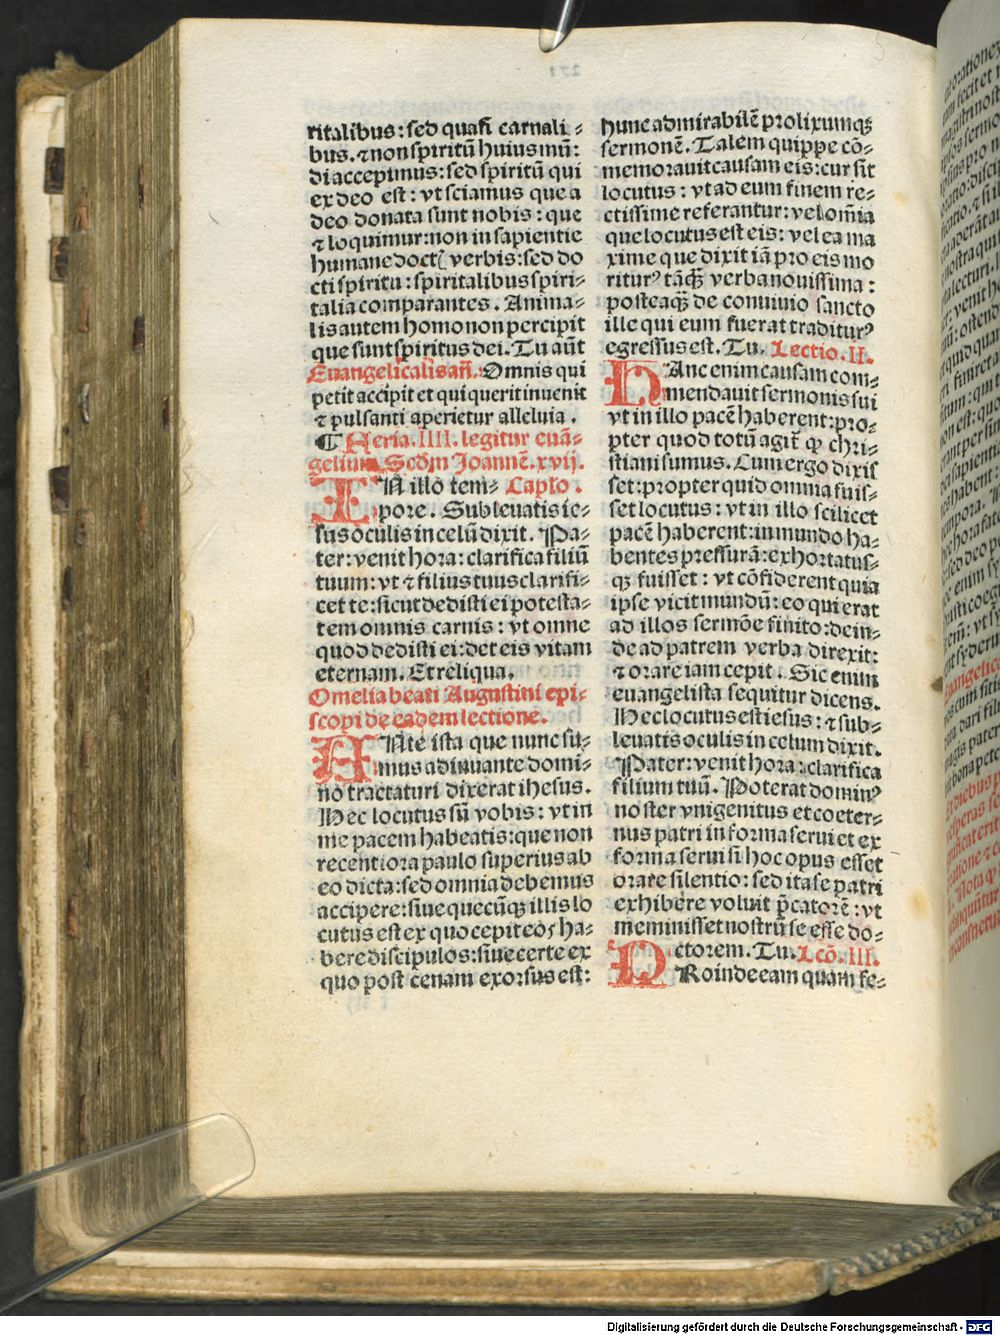 ritalibus: sed quasi carnali⸗
bus. ⁊ non spiritū huius mū:
di accepimus: sed spiritū qui
ex deo est: vt sciamus que a
deo donata sunt nobis: que
⁊ loquimur: non in sapientie
humane doctꝭ verbis: sed do
cti spiritu: spiritalibus spiri⸗
talia comparantes. Anima⸗
lis autem homo non percipit
que sunt spiritus dei. Tu aūt
Euangelicalis añ. Omnis qui
petit accipit et qui querit inuenit
⁊ pulsanti aperietur alleluia.
¶ Feria. IIII. legitur euā⸗
gelium Scđm Joannē. xvij.
IN illo tem⸗ Caplo.
pore. Subleuatis ie⸗
sus oculis in celū dixit. Pa⸗
ter: venit hora: clarifica filiū
tuum: vt ⁊ filius tuus clarifi⸗
cet te: sicut dedisti ei potesta⸗
tem omnis carnis: vt omne
quod dedisti ei: det eis vitam
eternam. Et reliqua.
Omelia beati Augustini epi⸗
scopi de eadem lectione.
ANte ista que nunc su⸗
mus adiuuante domi⸗
no tractaturi dixerat ihesus.
Hec locutus sū vobis: vt in
me pacem habeatis: que non
recentiora paulo superius ab
eo dicta: sed omnia debemus
accipere: siue quecūqꝫ illis lo
cutus est ex quo cepit eos ha⸗
bere discipulos: siue certe ex
quo post cenam exorsus est:
hunc admirabilē prolixumqꝫ
sermonē. Talem quippe cō⸗
memorauit causam eis: cur sit
locutus: vt ad eum finem re⸗
ctissime referantur: vel om̄ia
que locutus est eis: vel ea ma
xime que dixit iā pro eis mo
riturꝰ tāqꝫ verba nouissima:
posteaqꝫ de conuiuio sancto
ille qui eum fuerat traditurꝰ
egressus est. Tu. Lectio. II.
HAnc enim causam com⸗
mendauit sermonis sui
vt in illo pacē haberent: pro⸗
pter quod totū agit̄ ꝙ chri⸗
stiani sumus. Cum ergo dixis
set: propter quid omnia fuis⸗
set locutus: vt in illo scilicet
pacē haberent: in mundo ha⸗
bentes pressurā: exhortatus⸗
qꝫ fuisset: vt cōfiderent quia
ipse vicit mundū: eo qui erat
ad illos sermōe finito: dein⸗
de ad patrem verba direxit:
⁊ orare iam cepit. Sic enim
euangelista sequitur dicens.
Hec locutus est iesus: ⁊ sub⸗
leuatis oculis in celum dixit.
Pater: venit hora: clarifica
filium tuū. Poterat dominꝰ
noster vnigenitus et coeter⸗
nus patri in forma serui et ex
forma serui si hoc opus esset
orare silentio: sed ita se patri
exhibere voluit p̄catorē: vt
meminisset nostrū se esse do⸗
ctorem. Tu. Lcō. III.
PRoinde eam quam fe⸗
Digitalisierung gefördert durch die Deutsche Forschungsgemeinschaft - DFG